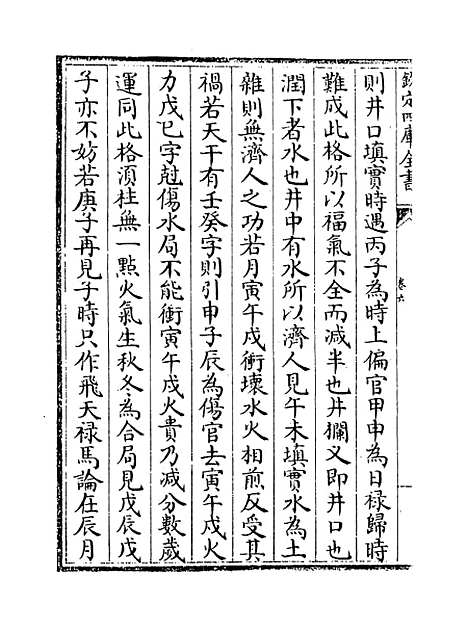 欽定四庫全書
卷六
則井口填實時遇丙子為時上偏官甲申為日禄歸時
難成此格所以福氣不全而减半也井欄叉即井口也
潤下者水也井中有水所以濟人見午未填實水為土
雜則無濟人之功若月寅午戌衝壞水火相煎反受其
禍若天干有壬癸字則引申子辰為傷官去寅午戌火
力戊已字尅傷水局不能衝寅午戌火貴乃减分數歲
運同此格湏柱無一點火氣生秋冬為合局見戊辰戊
子亦不妨若庚子再見子時只作飛天禄馬論在辰月